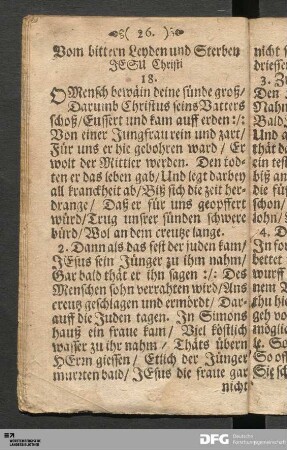 ( 26. )
Vom bittern Leyden und Sterben
JESU Christi
18.
O Mensch bewäin deine sünde groß/
Darumb Christus seins Vatters
schoß/ Eussert und kam auff erden :/:
Von einer Jungfrau rein und zart/
Für uns er hie gebohren ward/ Er
wolt der Mittler werden. Den tod-
ten er das leben gab/ Und legt darbey
all kranckheit ab/ Biß sich die zeit her-
drange/ Daß er für uns geopffert
würd/ Trug unser sünden schwere
bürd/ Wol an dem creutze lange.
2. Dann als das fest der juden kam/
JEsus sein Jünger zu ihm nahm/
Gar bald thät er ihn sagen :/: Des
Menschen sohn verrahten wird/ Ans
creutz geschlagen und ermördt/ Dar-
auff die Juden tagen. In Simons
hauß ein fraue kam/ Viel köstlich
wasser zu ihr nahm/ Thäts übern
HErrn giessen/ Etlich der Jünger
murrten bald/ JEsus die fraue gar
nicht
nicht
3.
Den
Bald
4. D
DFG
Deutsche
Forschungsgemeinschaft